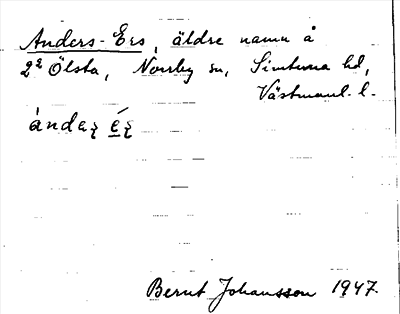 Anders-Ers, äldre namn å
2² Ölsta, Norrby sn, Simtuna hd,
Västmanl. l.
ándaʂ éʂ
Bernt Johansson 1947.